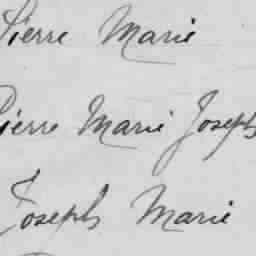 Pierre Marie
Pierre Marie Joseph
Joseph Marie